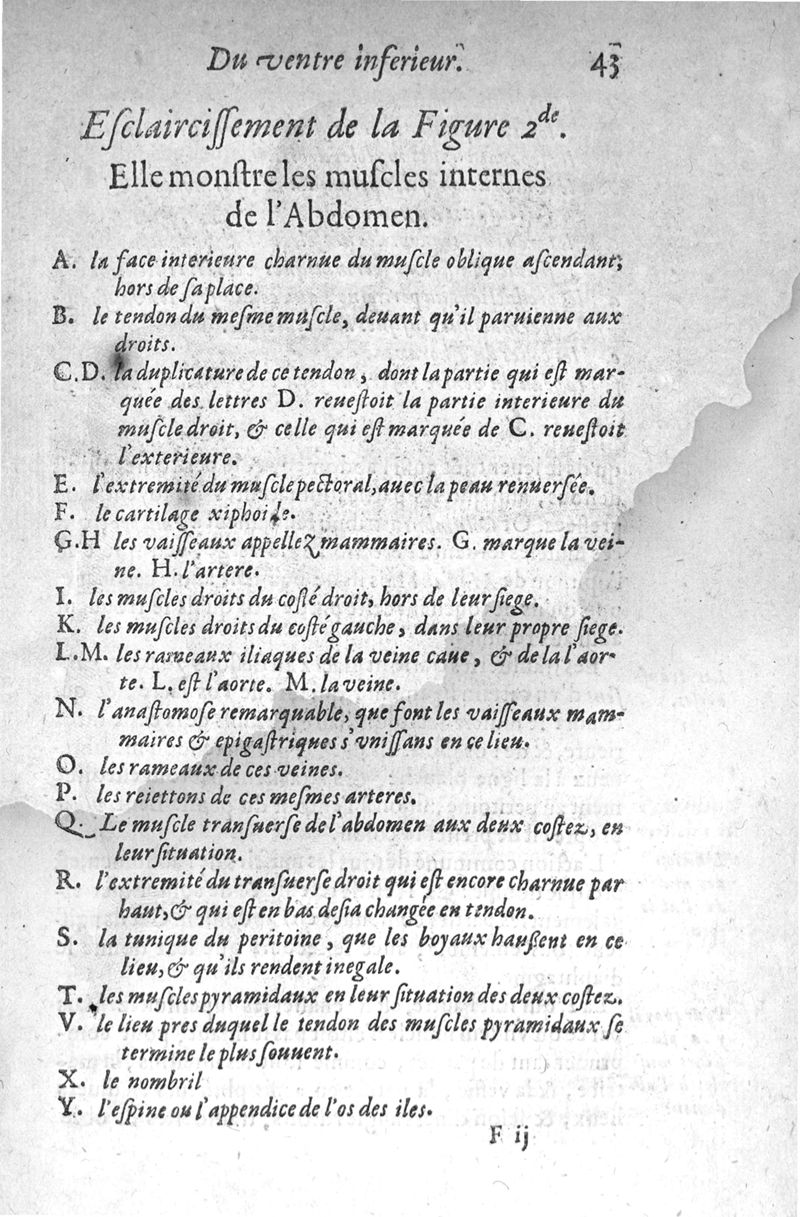 Du ventre inferieur. 43
Eſclairciſſement de la Figure 2de.
Elle monſtre les muſcles internes
de l'Abdomen.
A. la face interieure charnue du muſcle oblique aſcendant,
hors de ſa place.
B. le tendon du meſme muſcle, deuant qu'il paruienne aux
droits.
C.D. la duplicature de ce tendon, dont la partie qui eſt mar-
quée des lettres D. reueſtoit la partie interieure du
muſcle droit, & celle qui eſt marquée de C. reueſtoit
l'exterieure.
E. l'extremité du muſcle pectoral, auec la peau renuerſée.
F. le cartilage xiphoide.
G.H les vaiſſeaux appellez mammaires. G. marque la vei-
ne. H. l'artere.
I. les muſcles droits du coſté droit, hors de leur ſiege.
K. les muſcles droits du coſté gauche, dans leur propre ſiege.
L.M. les rameaux iliaques de la veine caue, & de la l'aor-
te. L. eſt l'aorte. M. la veine.
N. l'anaſtomoſe remarquable, que font les vaiſſeaux mam-
maires & epigaſtriques s'vniſſans en ce lieu.
O. les rameaux de ces veines.
P. les reiettons de ces meſmes arteres.
Q. Le muſcle tranſuerſe de l'abdomen aux deux coſtez, en
leur ſituation.
R. l'extremité du tranſuerſe droit qui eſt encore charnue par
haut, & qui eſt en bas deſia changée en tendon.
S. la tunique du peritoine, que les boyaux haußent en ce
lieu, & qu'ils rendent inegale.
T. les muſcles pyramidaux en leur ſituation des deux coſtez.
V. le lieu pres duquel le tendon des muſcles pyramidaux ſe
termine le plus ſouuent.
X. le nombril
Y. l'eſpine ou l'appendice de l'os des iles.
F ij